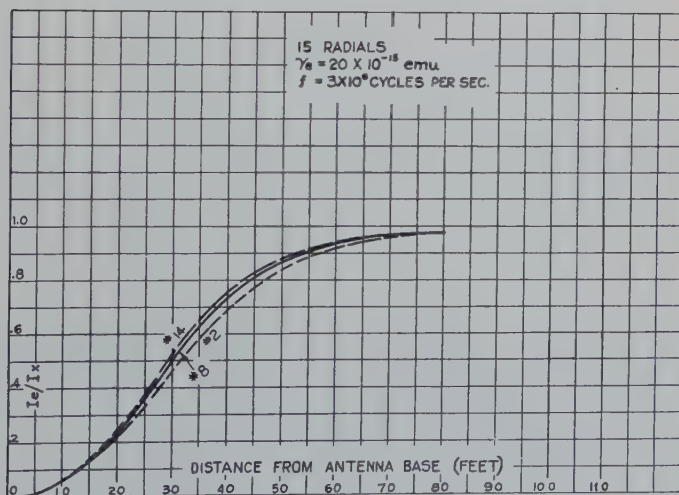 15 RADIALS
γe = 20 X 10⁻¹⁵ emu
f = 3X10⁶ CYCLES PER SEC.
1.0
.8
.6
.4
.2
Ie/Ix
#14
#2
#8
DISTANCE FROM ANTENNA BASE (FEET)
10 20 30 40 50 60 70 80 90 100 110